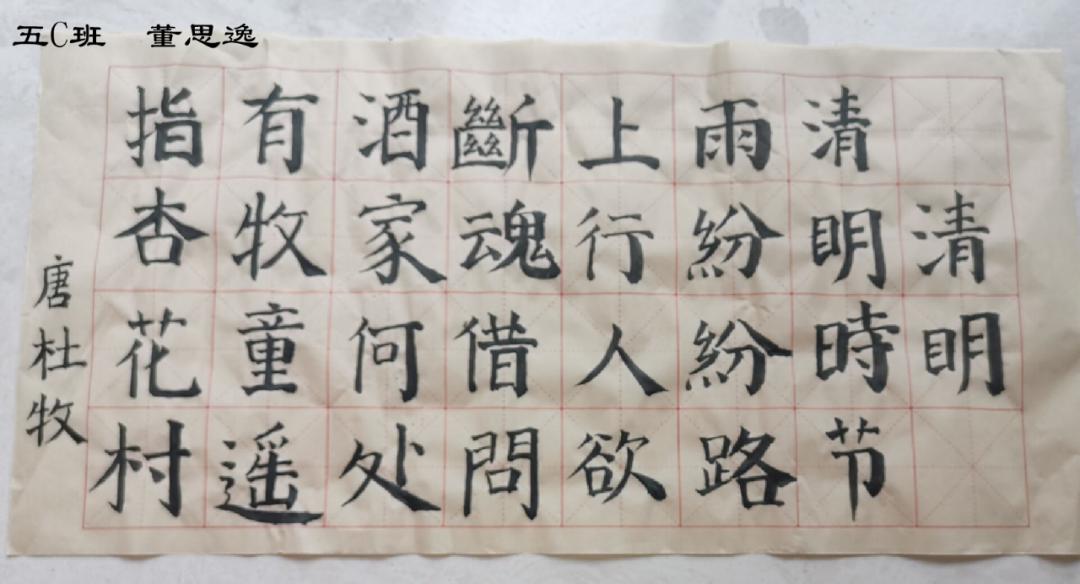 五C班 董思逸
清明
清明時节
雨紛紛路
上行人欲
斷魂借問
酒家何处
有牧童遥
指杏花村
唐杜牧